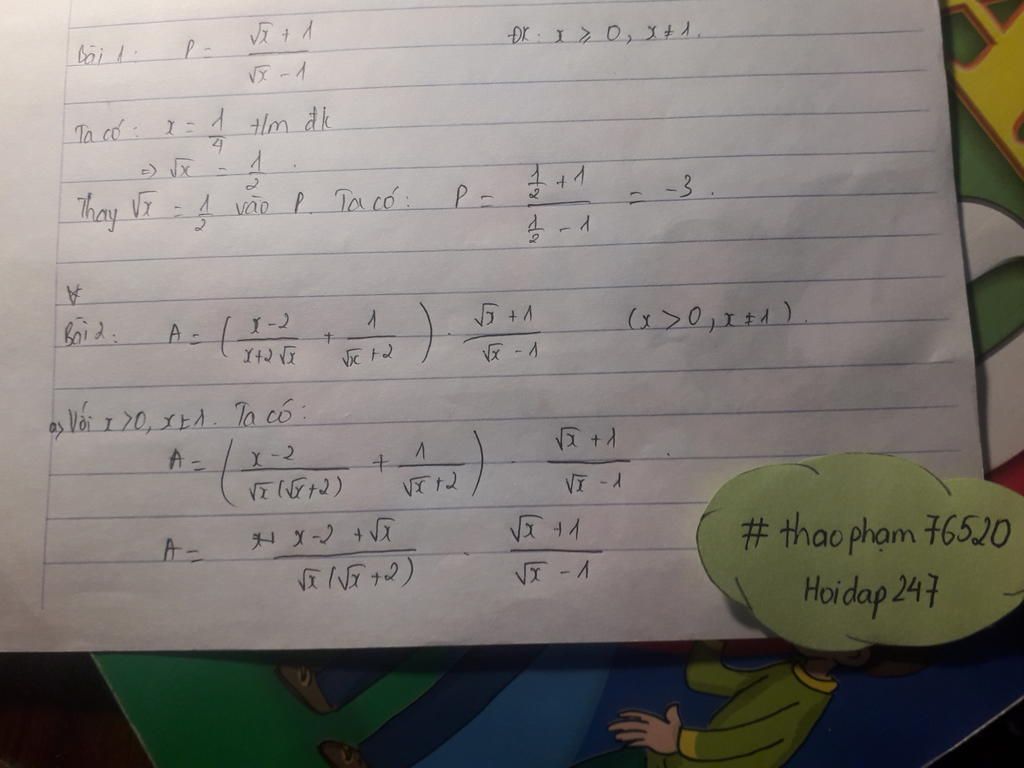 Bài 1: P = (√x + 1)/(√x - 1) ĐK: x ≥ 0, x ≠ 1.
Ta có: x = 1/4 t/m đk
=> √x = 1/2.
Thay √x = 1/2 vào P. Ta có: P = (1/2 + 1)/(1/2 - 1) = -3.
Bài 2: A = ((x-2)/(x+2√x) + 1/(√x+2)) . (√x+1)/(√x-1) (x > 0, x ≠ 1).
a, Với x > 0, x ≠ 1. Ta có:
A = ((x-2)/(√x(√x+2)) + 1/(√x+2)) . (√x+1)/(√x-1).
A = (x-2+√x)/(√x(√x+2)) . (√x+1)/(√x-1)
# thaophạm76520
Hoidap247